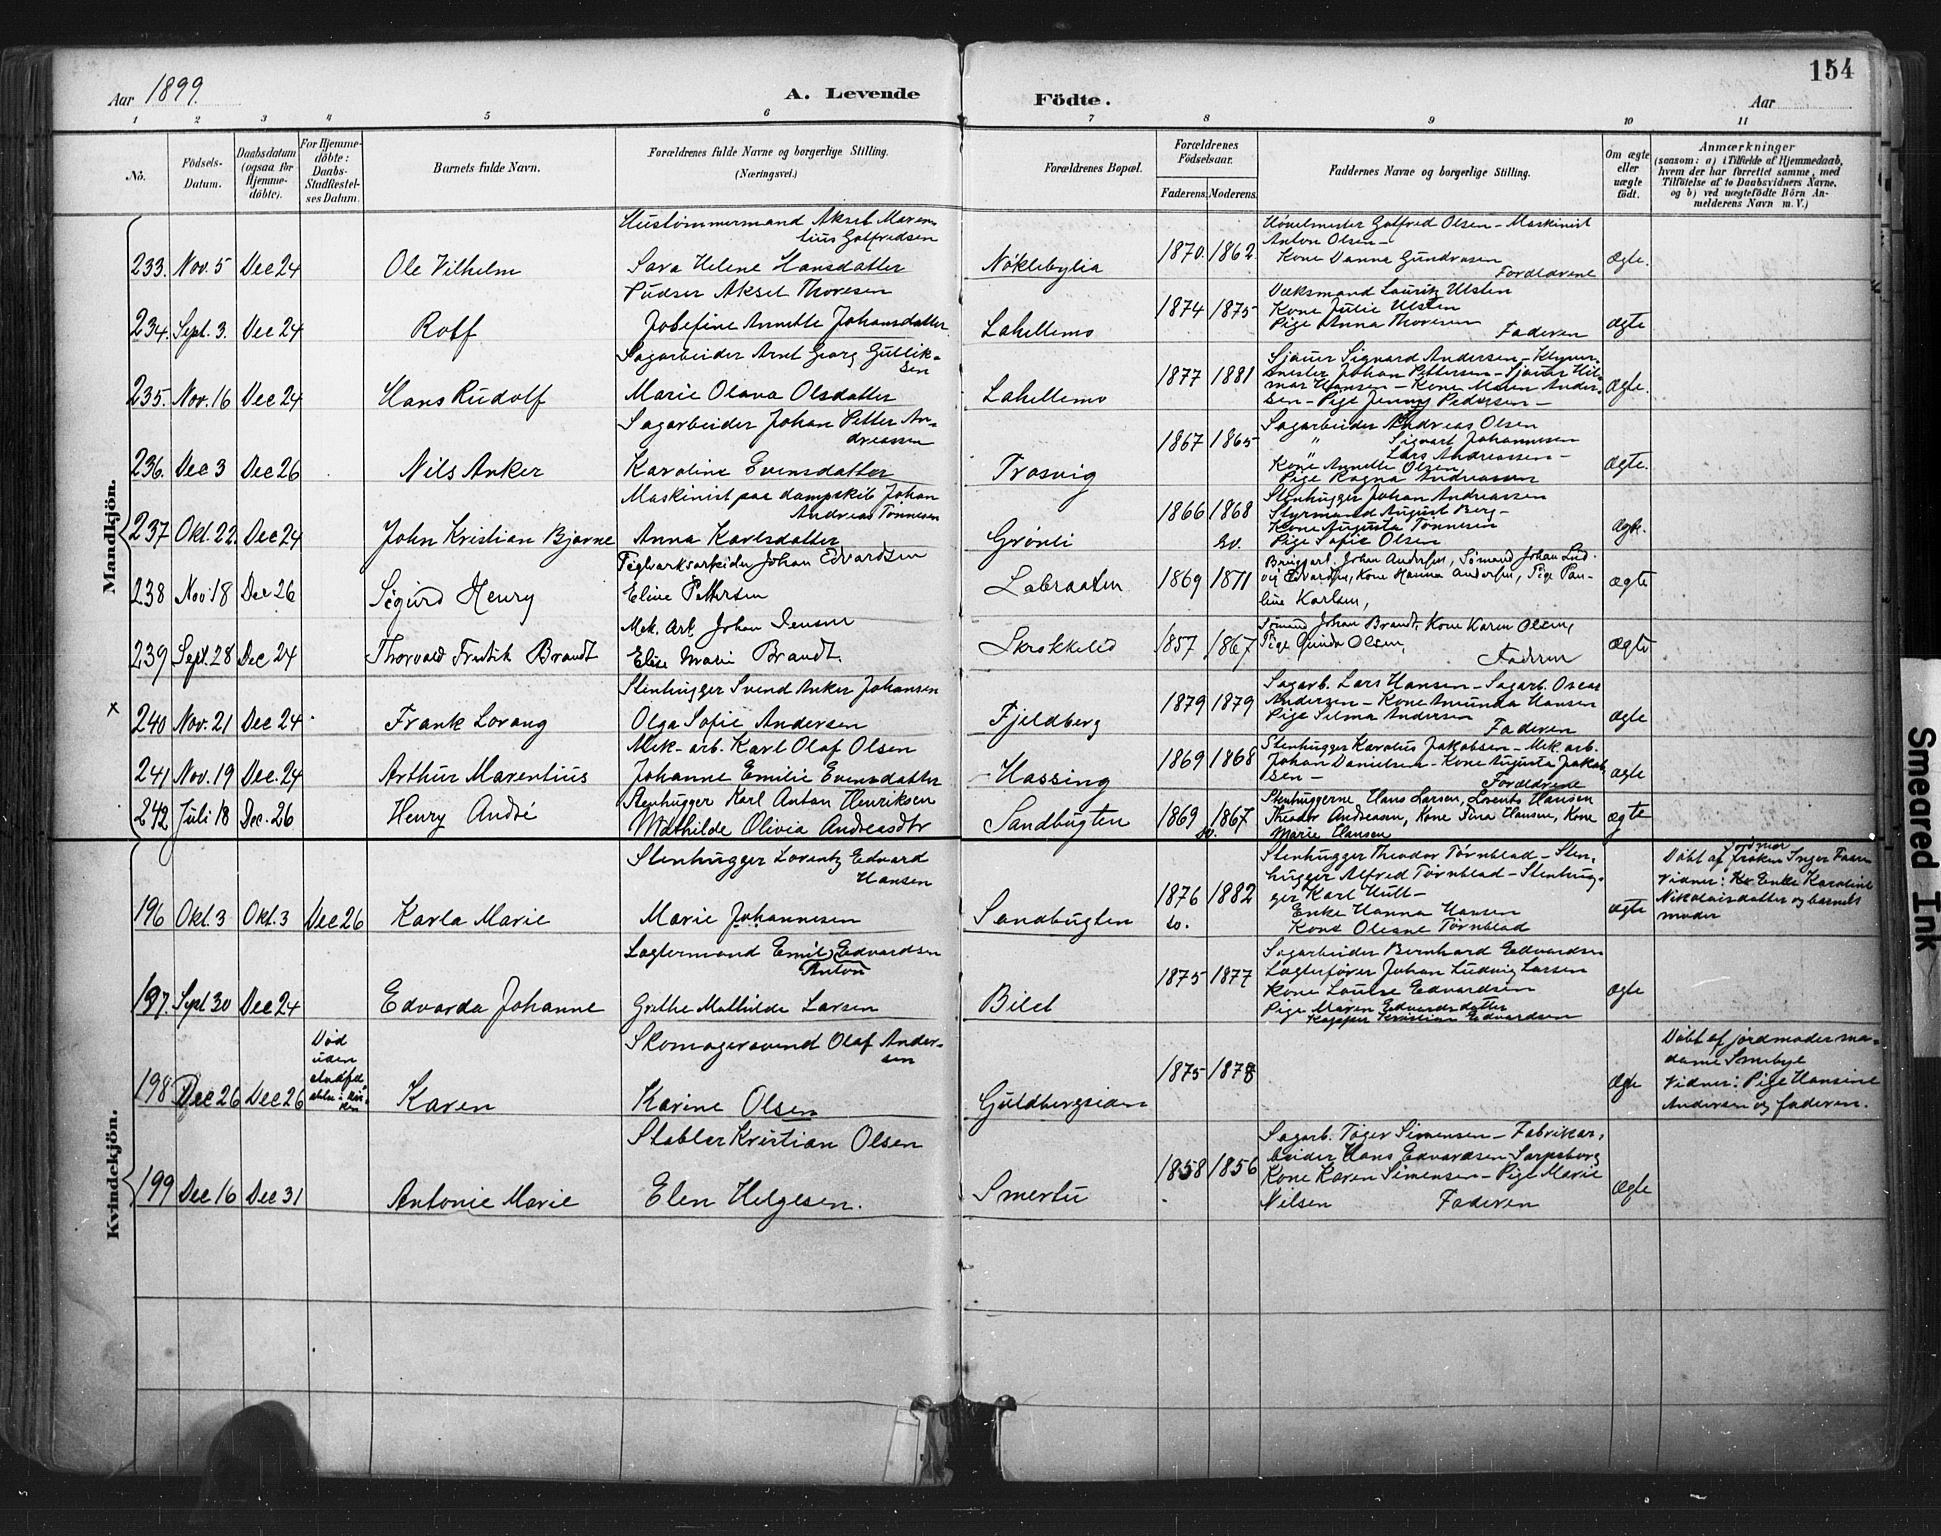 Aar 1899.
A. Levende Födte.
Aar
154
1 2 3 4 5 6 7 8 9 10 11
No.
Födsels-Datum.
Daabsdatum (ogsaa for Hjemme-döbte).
For Hjemme-döbte: Daabs-Stadfæstel-ses Datum.
Barnets fulde Navn.
Forældrenes fulde Navne og borgerlige Stilling.
(Næringsvei.)
Forældrenes Bopæl.
Forældrenes Födselsaar.
Faderens. Moderens.
Faddernes Navne og borgerlige Stilling.
Om ægte eller uægte födt.
Anmærkninger
(saasom: a) i Tilfælde af Hjemmedaab,
hvem der har forrettet samme, med
Tilföielse af to Daabsvidners Navne,
og b) ved uægtefödte Börn An-
melderens Navn m. V.)
Mandkjön.
Hustömmermand Aksel Maren-
tius Gotfredsen
233. Nov. 5 Dec 24 Ole Vilhelm Sara Helene Hansdatter Nøklebylia 1870. 1862
Hønelmester Gotfred Olsen - Maskinist
Anton Olsen -
Kone Danna Gundersen
Forældrene
Ægte.
Pudser Aksel Thoresen
234. Sept. 3. Dec 24 Rolf Josefine Annette Johansdatter Lahellemo 1874 1875
Væksmand Lauritz Ulsten
Kone Julie Ulsten
Pige Anna Thoresen
Faderen
Ægte
Sagarbeider Arnt Georg Gullik-
sen
235. Nov. 16 Dec 24 Hans Rudolf Marie Olava Olsdatter Lahellemo 1877 1881
Sjauer Sigvard Andersen - Klyver-
mester Johan Pettersen - Sjauer Hil-
mar Hansen - Kone Maren Ander-
sen - Pige Jenny Pedersen -
Ægte.
Sagarbeider Johan Petter An-
dreassen
236. Dec 3 Dec 26 Nils Anker Karoline Evensdatter Trosvig 1867 1865
Sagarbeider Andreas Olsen
" Sigvart Johannesen
" Lars Andreassen -
Kone Annette Olsen
Pige Ragna Andreassen
Ægte.
Maskinist paa dampskib Johan
Andreas Tønnesen
237 Okt. 22. Dec 24 John Kristian Bjarne Anna Karlsdatter Grønli 1866 1868
Stenhugger Johan Andreassen
Styrmand August Berg -
Kone Augusta Tønnesen
Pige Sofie Olsen
Ægte.
Teglverksarbeider Johan Edvardsen
238 Nov. 18 Dec 26 Sigurd Henry Eline Pettersen Labraaten 1869 1871
Bryggarb. Johan Andersen, Sømand Johan Lud-
vig Edvardsen, Kone Hanna Andersen, Pige Pau-
line Karlsen,
Ægte
Mek. Arb. Johan Jensen
239 Sept. 28 Dec 24 Thorvald Fredrik Brandt Elise Marie Brandt. Skrokkelid 1857 1867
Sømand Johan Brandt, Kone Karen Olsen,
Pige Gunda Olsen,
Faderen
Ægte
Stenhugger Svend Anker Johansen
x 240 Nov. 21 Dec 24 Frank Lorang Olga Sofie Andersen Fjeldberg 1879 1879
Sagarb. Lars Hansen - Sagarb. Oscar
Andersen - Kone Amunda Hansen
Pige Silma Andersen
Faderen
Ægte
Mek. arb. Karl Olaf Olsen
241 Nov. 19 Dec. 24 Arthur Marentius Johanne Emilie Evensdatter Hassing 1869 1868
Stenhugger Karolius Jakobsen - Mek. arb.
Johan Danielsen - Kone Augusta Jakob-
sen -
Forældrene
Ægte
Stenhugger Karl Anton Henriksen
242 Juli 18 Dec. 26 Henry André Mathilde Olivia Andreasdtr Sandbugten 1869 1867
Stenhuggerne Hans Larsen, Lorents Hansen
Theodor Andreasen, Kone Tina Hansen, Kone
Marie Hansen
Ægte
Kvindekjön.
Stenhugger Lorentz Edvard
Hansen
196 Okt. 3 Okt. 3 Dec 26 Karla Marie Marie Johannesen Sandbugten 1876 1882
Stenhugger Theodor Tørnblad - Sten-
hugger Alfred Tørnblad - Stenhug-
ger Karl Hult -
Enke Hanna Hansen
Kone Olesne Tørnblad
Ægte
Døbt af frøken Inger Faan
Vidner: Enke Karoline
Nikolaisdatter og barnets
moder
Lagtermand Emil Edvardsen
Anton
197. Sept 30 Dec 24 Edvarda Johanne Grethe Mathilde Larsen Bilet 1875 1877
Sagarbeider Bernhard Edvardsen
Lagterfører Johan Ludvig Larsen
Kone Louise Edvardsen
Pige Maren Edvardsdatter
Kristian Edvardsen
Ægte
Død
uden
Skomagersvend Olaf Ander-
sen
198 Dec 26 Dec 26 Karen Karine Olsen Guldbergsiden 1875 1878
Ægte
Døbt af jordmoder ma-
dame Smebye
Vidner: Pige Hansine
Andersen og faderen.
Stabler Kristian Olsen
199 Dec 16 Dec 31 Antonie Marie Elen Helgesen. Smertu 1858 1856
Sagarb. Tøger Simensen - Fabrikar-
beider Hans Edvardsen - Sarpsborg
Kone Karen Simensen - Pige Marie
Nilsen Faderen
Ægte
Smeared Ink